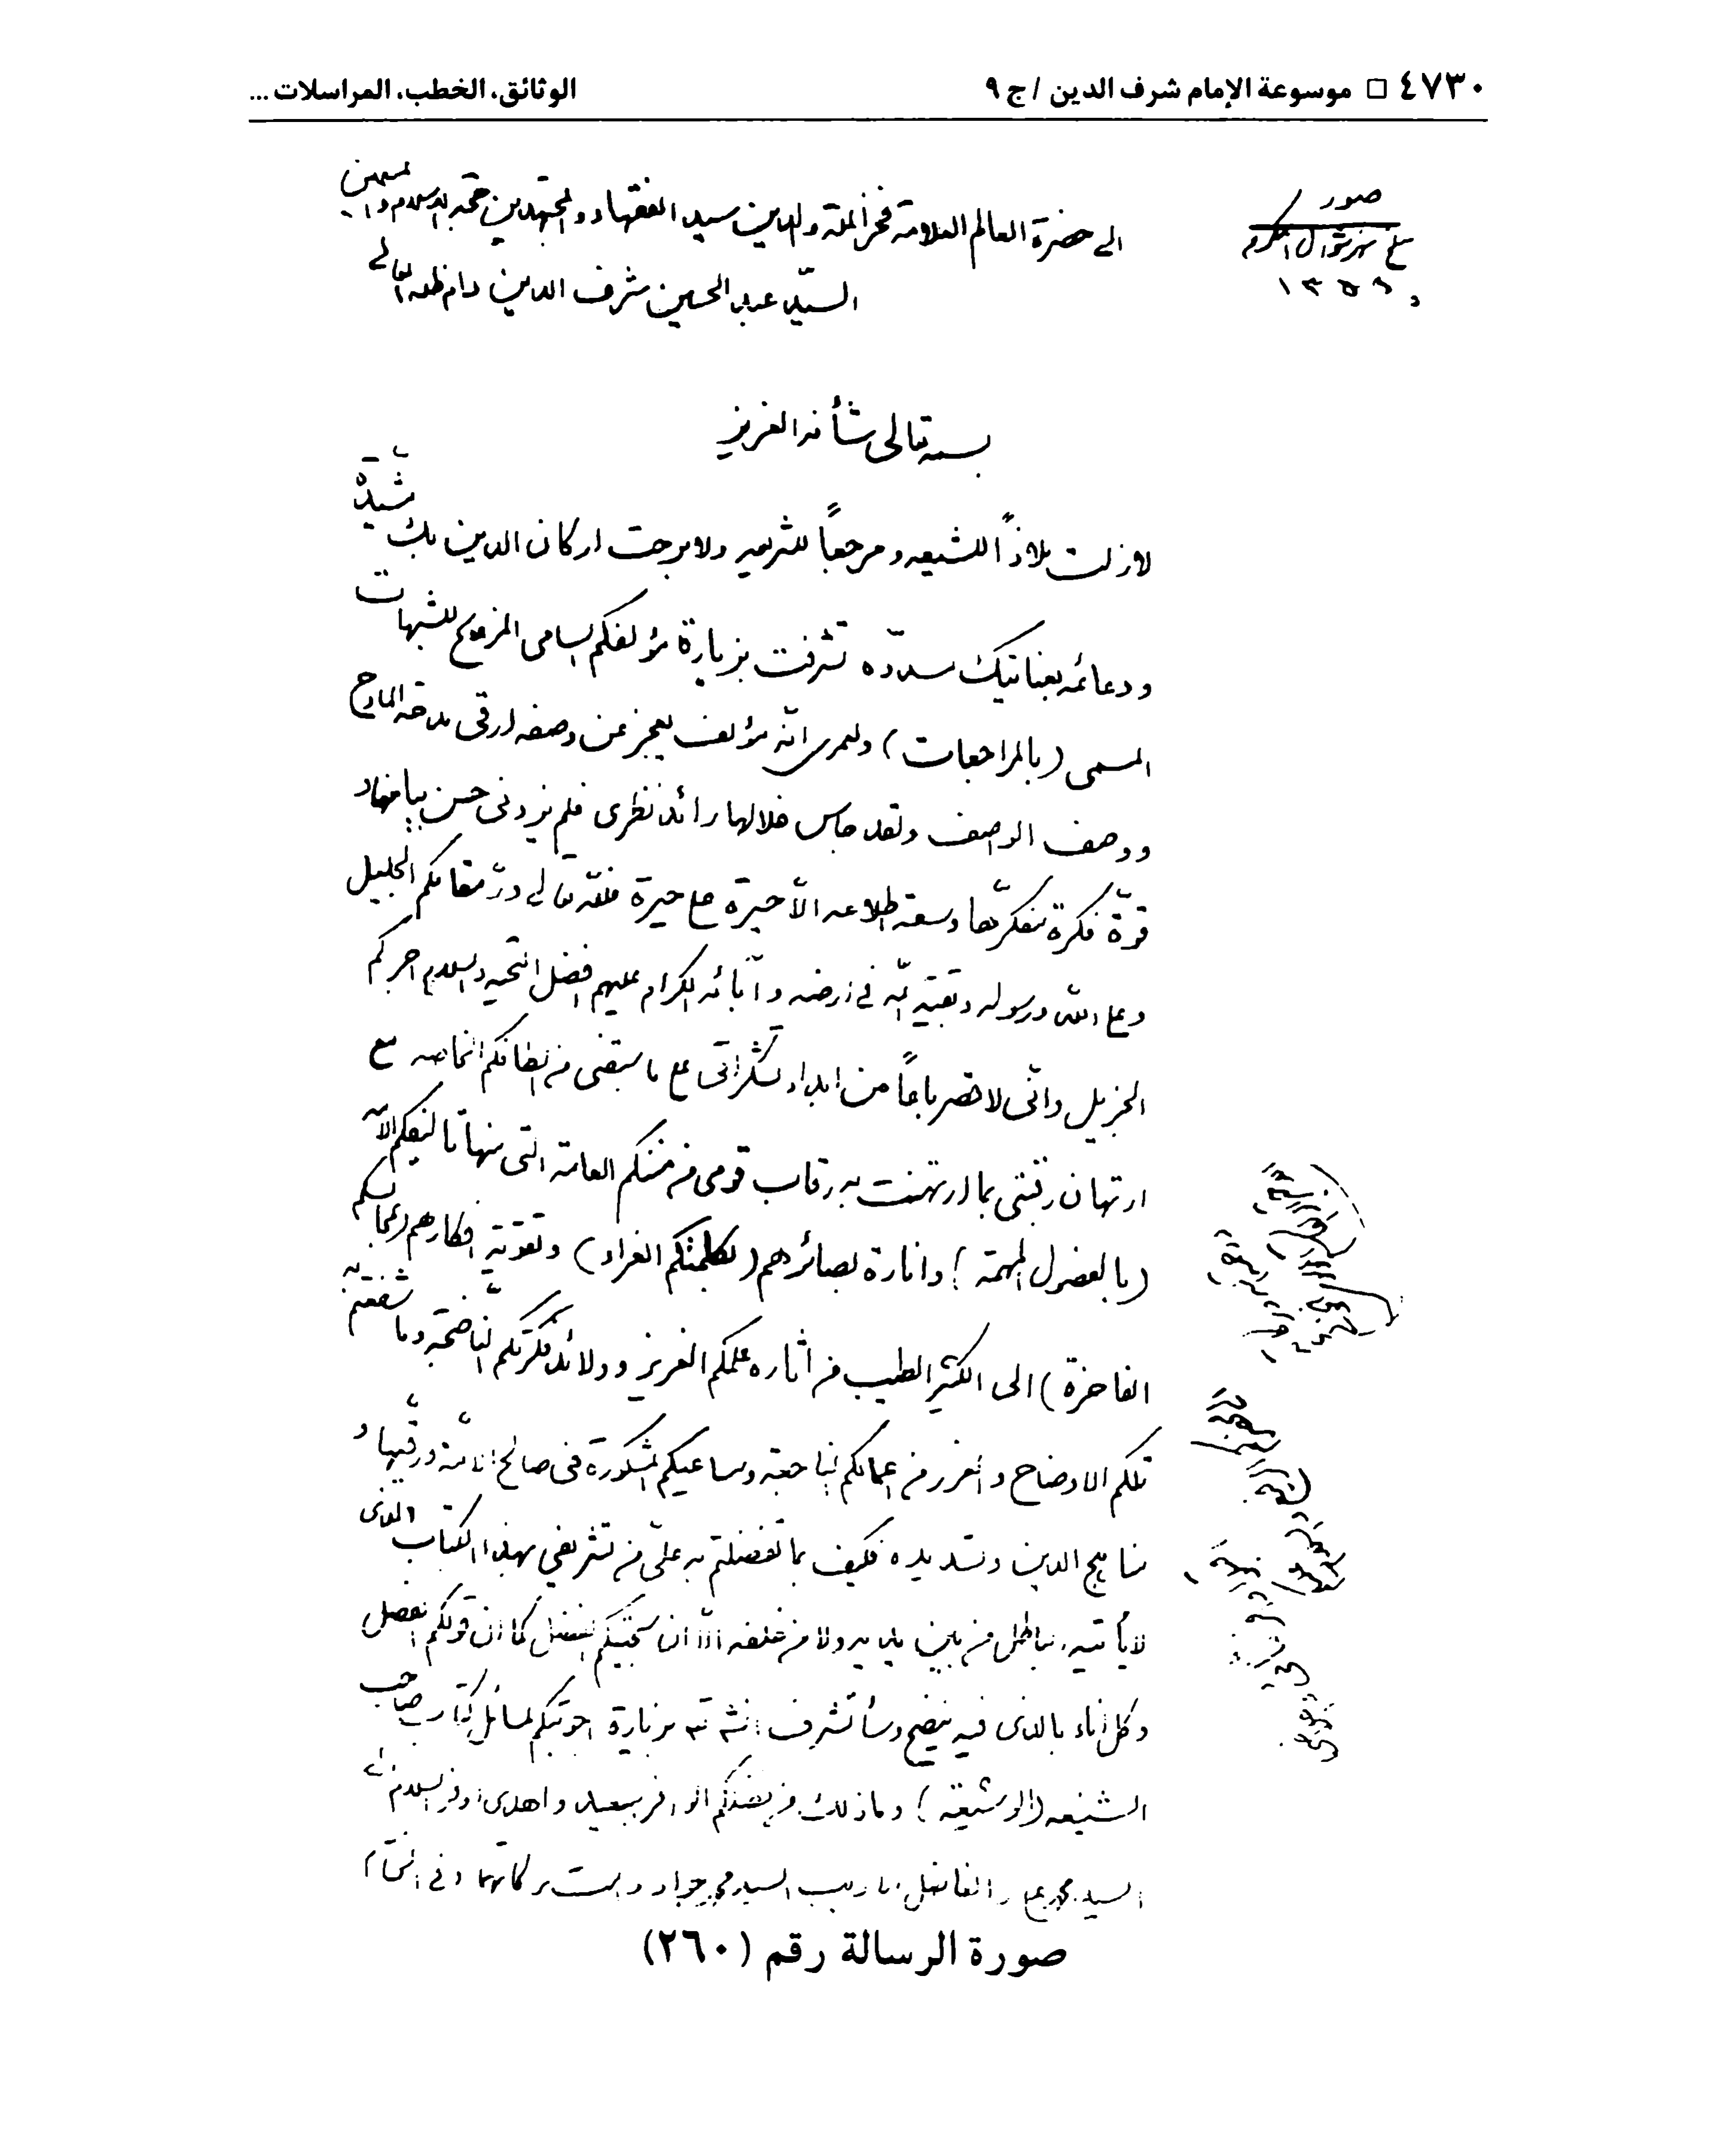 ٤٧٣٠ □ موسوعة الإمام شرف الدين / ج ٩
الوثائق، الخطب، المراسلات ...
صور
سلخ شهر شوال المكرم
١٣٥٦
الى حضرة العالم العلامة فخر الملة والدين سيد الفقهاء والمجتهدين حجة الاسلام والمسلمين
السيّد عبد الحسين شرف الدين دام ظله العالي
بسمه تعالى شأنه العزيز
لازلت ملاذاً للشيعه ومرجعاً للشريعه ولا برحت اركان الدين بك مشيدة
ودعائمه بعنايتك مسدّده تشرفت بزيارة مؤلفكم السامي المزيح للشبهات
المسمى (بالمراجعات) ولعمري انّه مؤلف يعجز عن وصفه ارقى مدحة المادح
ووصف الواصف ولقد جاس خلالها رائد نظري فلم يزدني حسن بيانها و
قوّة فكرة مفكرها وسعة اطلاعه الاّ حيرة على حيرة فلله تعالى درّ مقامكم الجليل
وعلى الله ورسوله وبقية الله في ارضه وآبائه الكرام عليهم افضل التحيه والسلام اجركم
الجزيل وانّي لاقصر باعاً من ابداء تشكراتي على ما سبقني من الطافكم الخاصه مع
ارتهان رقبتي بما ارتهنت به رقاب قومي من مننكم العامة التي منها تأليفكم
(بالفصول المهمة) وانارة بصائرهم (لكلمتكم الغراء) وتقوية افكارهم (بمجالسكم
الفاخرة) الى الكثير الطيب من اثاره علمكم الغزير وولائد فكرتكم الناضجة وما شفعتم به
تلكم الاوضاح و الغرر من اعمالكم الناجعة ومساعيكم المشكورة في صالح الامّة ورقيّها و
مناهج الدين وتسديده فكيف بما تفضلتم به عليّ من تشريفي بهذا الكتاب الذي
لا يأتيه الباطل من بين يديه ولا من خلفه الاّ ان سجيتكم الفضل كما ان قولكم الفصل
وكل اناء بالذي فيه ينضح وسأتشرف انشاء الله بزيارة اجوبتكم لمسائل جار صاحب
الشنيعه (الوشيعة) وما ذلك من فضلكم الوافر ببعيد واهدي اوفر السلام
السيد محمد علي والفاضل الاديب السيد محمد جواد دامت بركاتهما وفي الختام
صورة الرسالة رقم (٢٦٠)